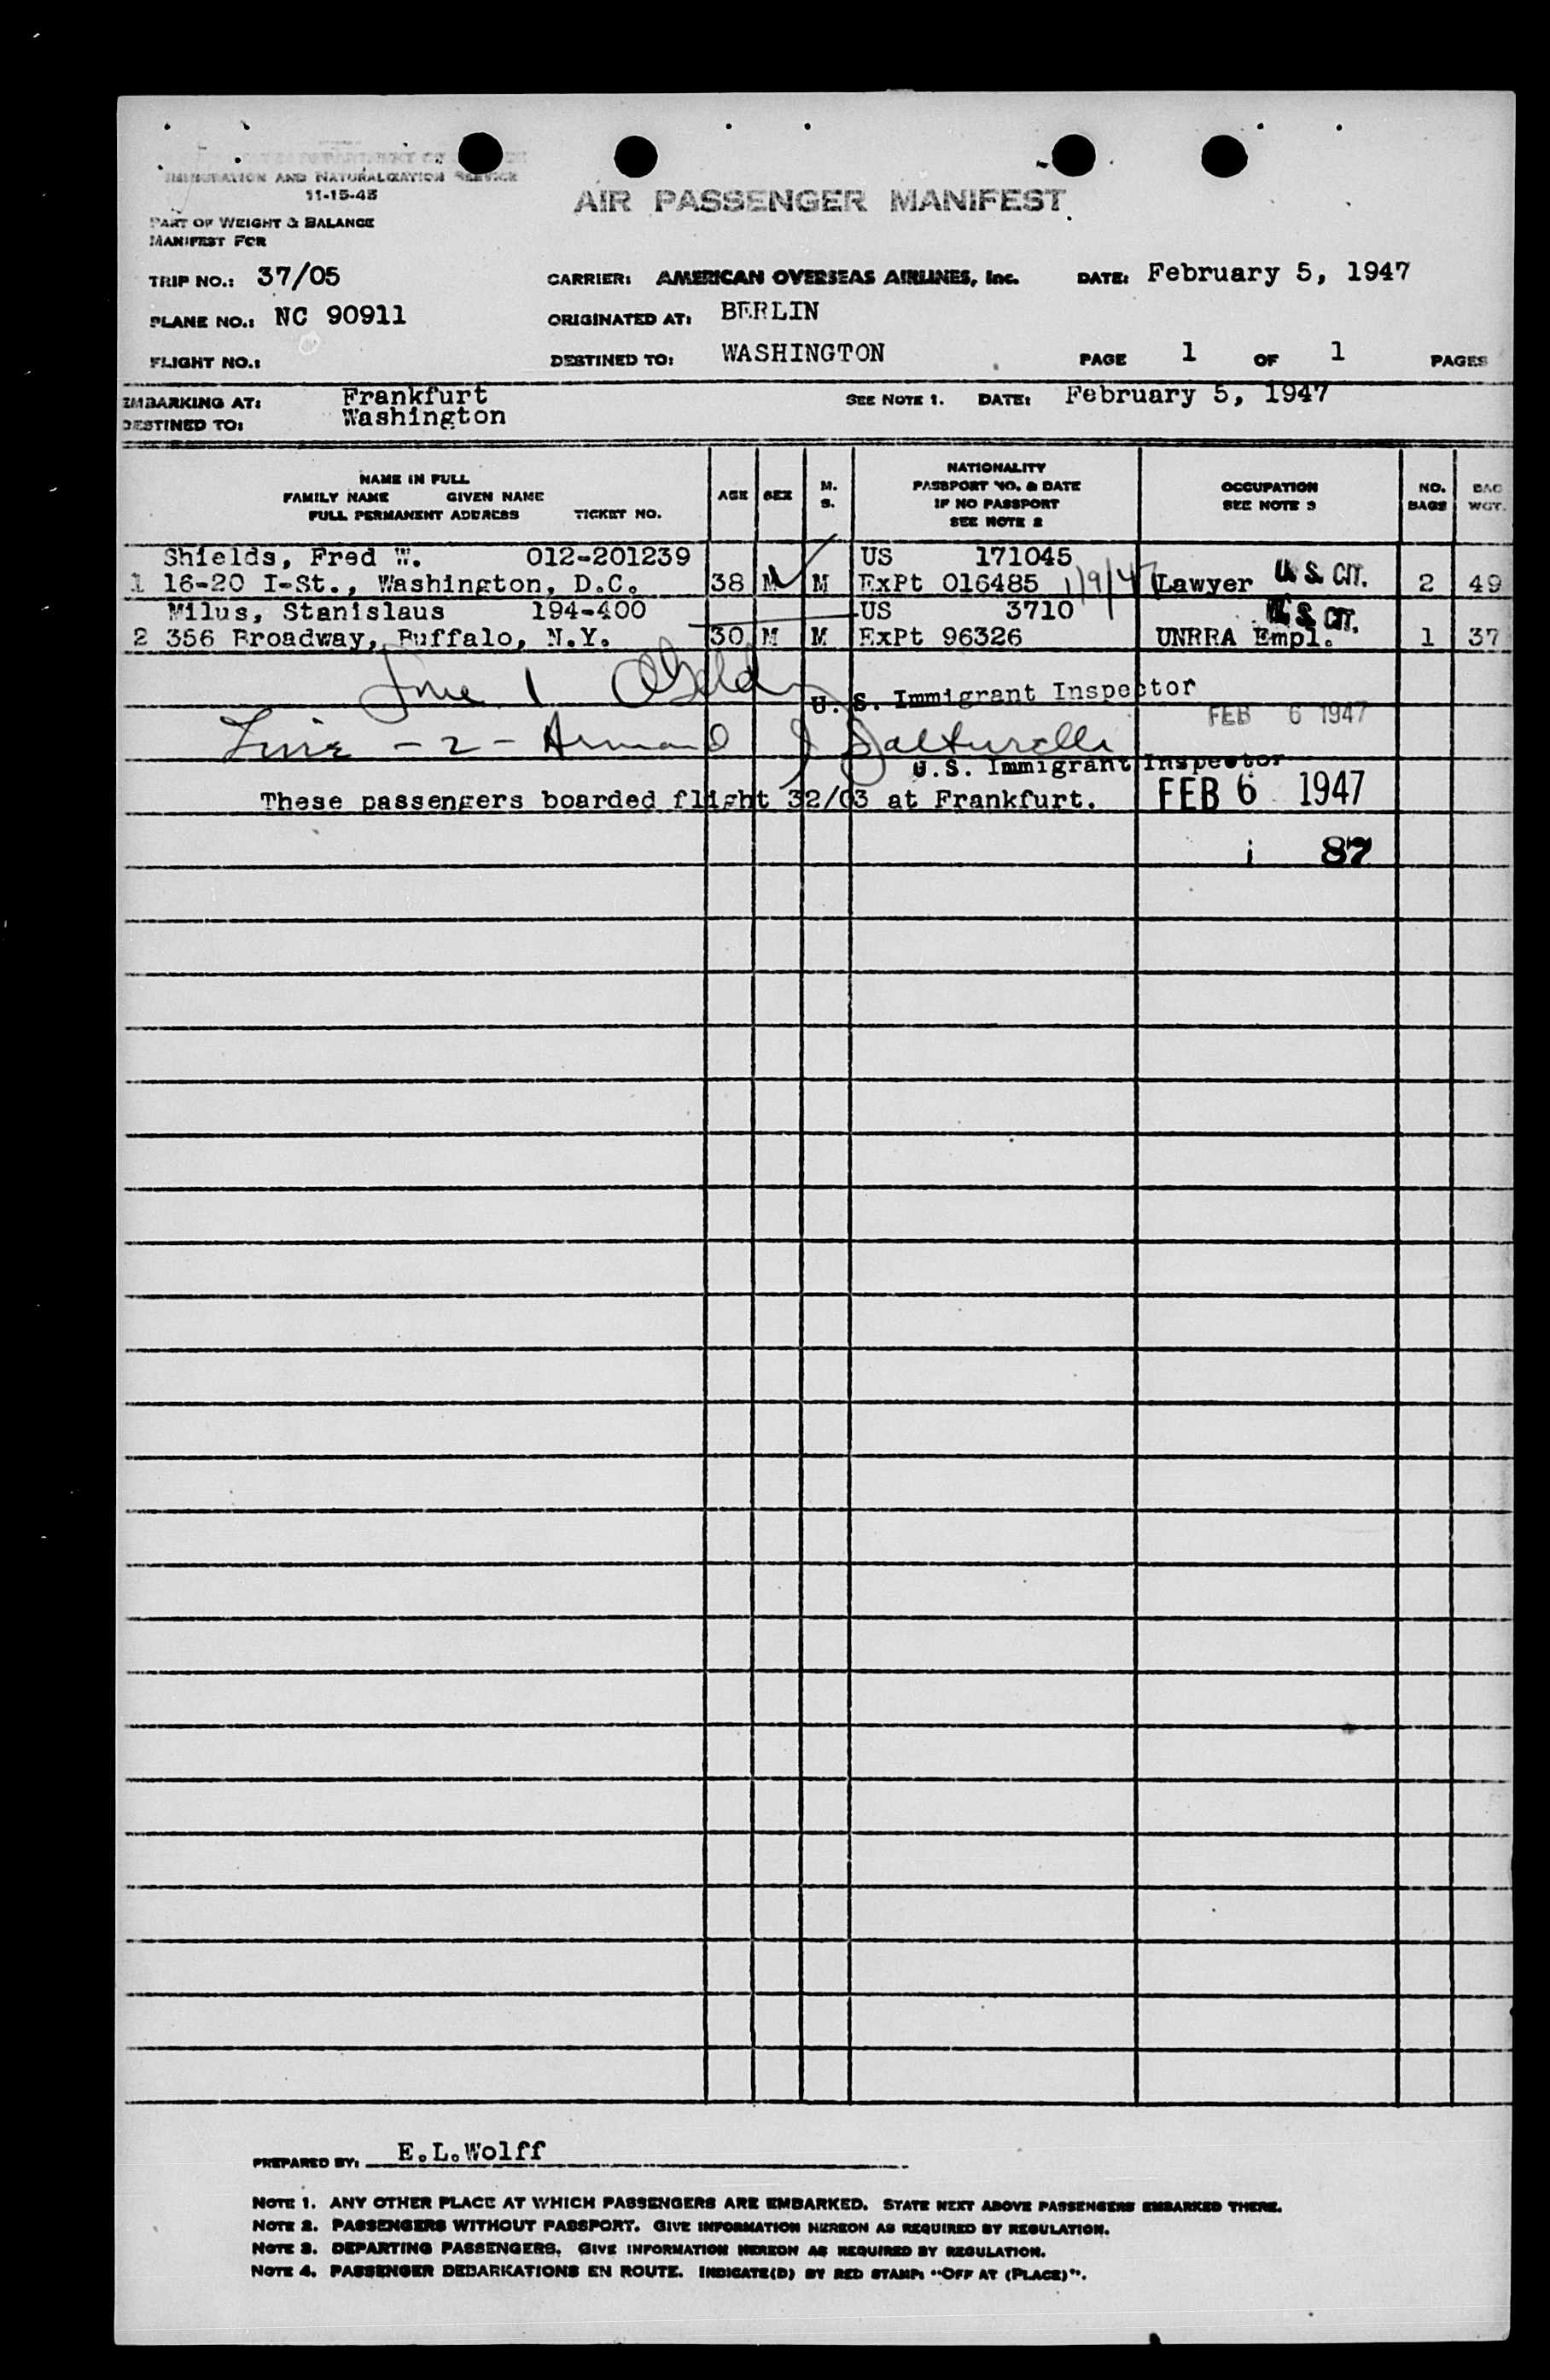 IMMIGRATION AND NATURALIZATION SERVICE
11-15-45
AIR PASSENGER MANIFEST
PART OF WEIGHT & BALANCE
MANIFEST FOR
TRIP NO.: 37/05 CARRIER: AMERICAN OVERSEAS AIRLINES, Inc. DATE: February 5, 1947
PLANE NO.: NC 90911 ORIGINATED AT: BERLIN
FLIGHT NO.: DESTINED TO: WASHINGTON PAGE 1 OF 1 PAGES
EMBARKING AT: Frankfurt SEE NOTE 1. DATE: February 5, 1947
DESTINED TO: Washington
NAME IN FULL
FAMILY NAME GIVEN NAME
FULL PERMANENT ADDRESS TICKET NO.
AGE SEX M. S.
NATIONALITY
PASSPORT NO. & DATE
IF NO PASSPORT
SEE NOTE 2
OCCUPATION
SEE NOTE 3
NO. BAGS
BAG WGT.
Shields, Fred W. 012-201239 US 171045
1 16-20 I-St., Washington, D.C. 38 M M ExPt 016485 1/9/47 Lawyer U.S. CIT. 2 49
Milus, Stanislaus 194-400 US 3710 U.S. CIT.
2 356 Broadway, Buffalo, N.Y. 30 M M ExPt 96326 UNRRA Empl. 1 37
Line 1
U. S. Immigrant Inspector
FEB 6 1947
Line - 2 - Armand J
U.S. Immigrant Inspector
These passengers boarded flight 32/03 at Frankfurt. FEB 6 1947
87
PREPARED BY: E.L.Wolff
NOTE 1. ANY OTHER PLACE AT WHICH PASSENGERS ARE EMBARKED. STATE NEXT ABOVE PASSENGERS EMBARKED THERE.
NOTE 2. PASSENGERS WITHOUT PASSPORT. GIVE INFORMATION HEREON AS REQUIRED BY REGULATION.
NOTE 3. DEPARTING PASSENGERS. GIVE INFORMATION HEREON AS REQUIRED BY REGULATION.
NOTE 4. PASSENGER DEBARKATIONS EN ROUTE. INDICATE(D) BY RED STAMP: "OFF AT (PLACE)".